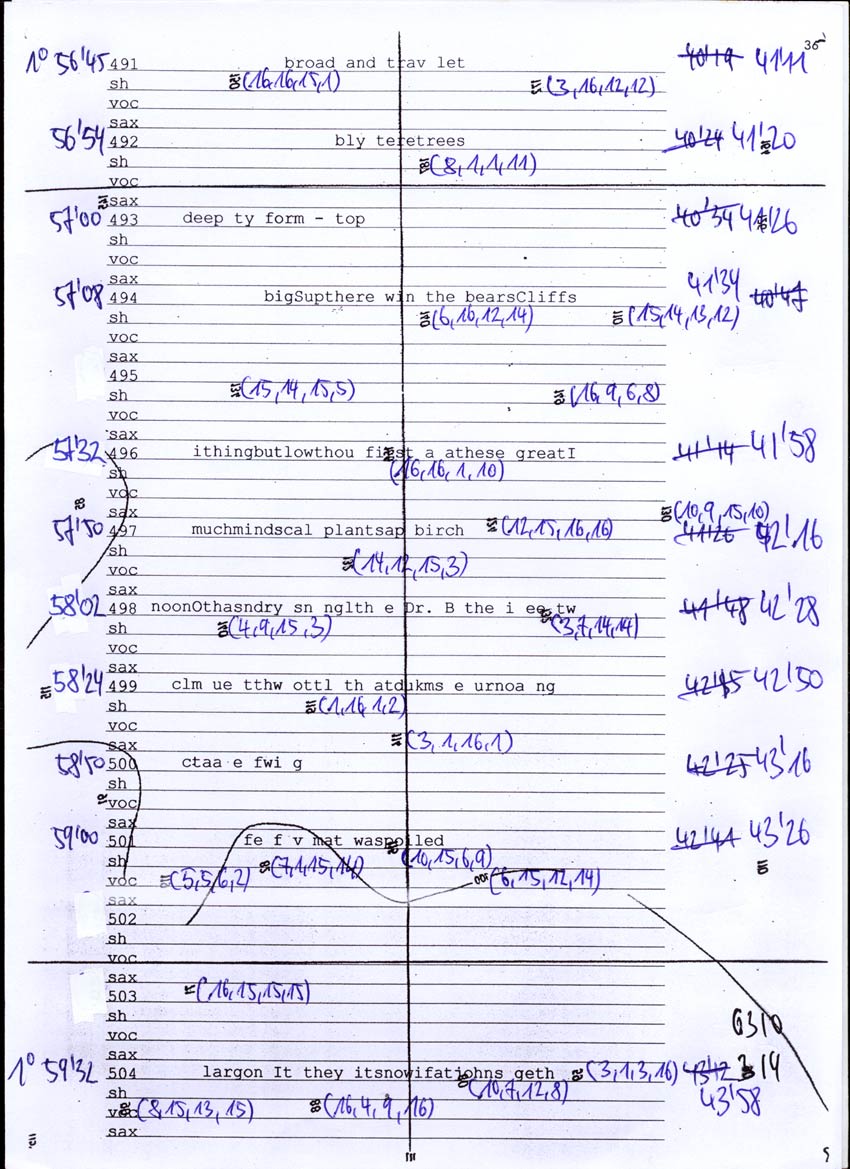 36
1° 56'45 491 broad and trav let 40'19 41'11
sh (16,16,15,1) (3,16,12,12)
voc
sax
56'54 492 bly teretrees 40'24 41'20
sh (8,1,1,11)
voc
sax
57'00 493 deep ty form - top 40'34 41'26
sh
voc
sax 41'34
57'08 494 bigSupthere win the bearsCliffs 40'47
sh (6,16,12,14) (15,14,13,12)
voc
sax
495
sh (15,14,15,5) (16,9,6,8)
voc
sax
57'32 496 ithingbutlowthou first a athese greatI 41'14 41'58
sh (16,16,1,10)
voc
sax (10,9,15,10)
57'50 497 muchmindscal plantsap birch (12,15,16,16) 41'26 42'16
sh
voc (14,12,15,3)
sax
58'02 498 noonOthasndry sn nglth e Dr. B the i ee tw 41'48 42'28
sh (4,9,15,3) (3,7,14,14)
voc
sax
58'24 499 clm ue tthw ottl th atdukms e urnoa ng 42'50
sh (1,16,1,2)
voc
sax (3,1,16,1)
58'50 500 ctaa e fwi g 42'25 43'16
sh
voc
sax
59'00 501 fe f v mat waspoiled 42'41 43'26
sh (7,1,15,14) (10,15,6,9)
voc (5,5,6,2) (6,15,12,14)
sax
502
sh
voc
sax
503 (16,15,15,15)
sh
voc
sax
1° 59'32 504 largon It they itsnowifatjohns geth (3,1,3,16) 43'12 14
sh (10,7,12,8) 43'58
voc (8,15,13,15) (16,4,9,16)
sax